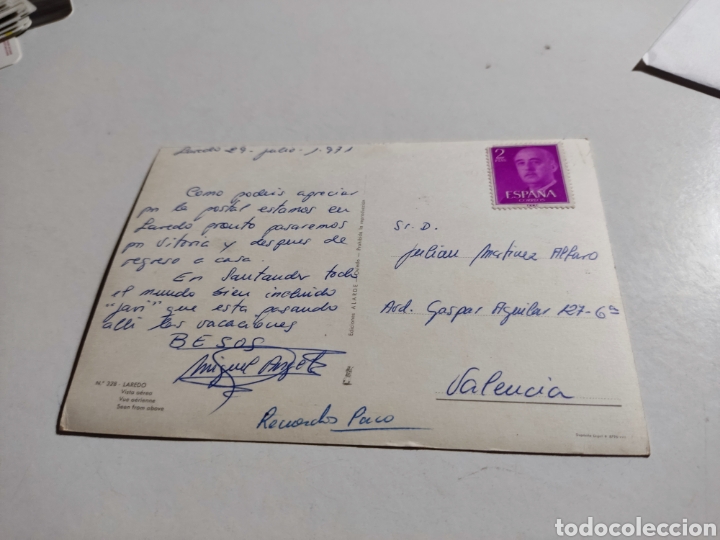 Laredo 29 - julio - 1.971
Como podeis apreciar
por la postal estamos en
Laredo pronto pasaremos
por Vitoria y despues de
regreso a casa.
En Santander todo
el mundo bien incluido
"Javi" que esta pasando
alli las vacaciones
BESOS
Miguel Angel
Recuerdos Paco
N.º 328 - LAREDO
Vista aérea
Vue aérienne
Seen from above
Prohibida la reproducción
2
ESPAÑA
CORREOS
Sr. D.
Julian Martinez Alfaro
Avd. Gaspar Aguilar 127-6ª
Valencia
todocoleccion